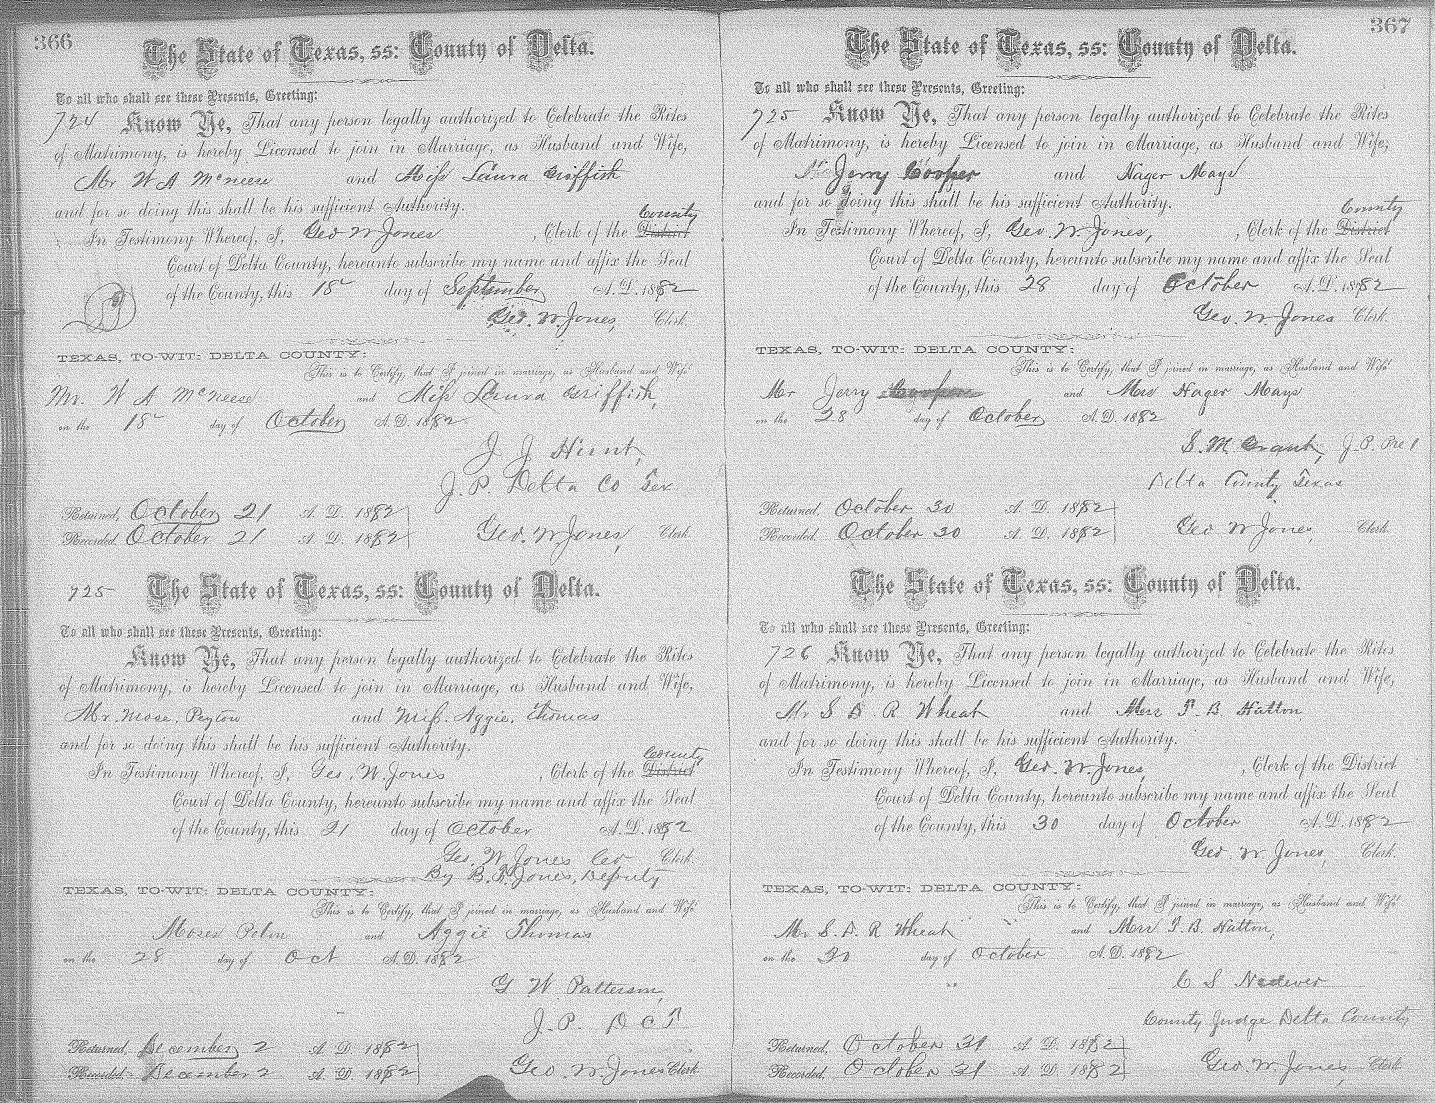 366
The State of Texas, ss: County of Delta.
To all who shall see these Presents, Greeting:
724 Know Ye, That any person legally authorized to Celebrate the Rites
of Matrimony, is hereby Licensed to join in Marriage, as Husband and Wife,
Mr W A McNeese and Miss Laura Griffith
and for so doing this shall be his sufficient Authority.
County
In Testimony Whereof, I, Geo W Jones, Clerk of the District
Court of Delta County, hereunto subscribe my name and affix the Seal
of the County, this 18 day of September A. D. 1882
Geo. W. Jones, Clerk.
TEXAS, TO-WIT: DELTA COUNTY:
This is to Certify, that I joined in marriage, as Husband and Wife
Mr. W A McNeese and Miss Laura Griffith,
on the 18 day of October A. D. 1882
J J Hunt,
J. P. Delta Co Tex
Returned, October 21 A. D. 1882
Recorded October 21 A. D. 1882 Geo. W Jones, Clerk
725 The State of Texas, ss: County of Delta.
To all who shall see these Presents, Greeting:
Know Ye, That any person legally authorized to Celebrate the Rites
of Matrimony, is hereby Licensed to join in Marriage, as Husband and Wife,
Mr. Mose. Peyton and Miss. Aggie. Thomas
and for so doing this shall be his sufficient Authority.
County
In Testimony Whereof, I, Geo. W. Jones, Clerk of the District
Court of Delta County, hereunto subscribe my name and affix the Seal
of the County, this 21 day of October A. D. 1882
Geo. W. Jones Clerk.
By B. Jones, Deputy
TEXAS, TO-WIT: DELTA COUNTY:
This is to Certify, that I joined in marriage, as Husband and Wife
Moses and Aggie Thomas
on the 28 day of Oct A. D. 1882
G W Patterson,
J. P. D C T
Returned, December 2 A. D. 1882
Recorded. December 2 A. D. 1882 Geo. W Jones Clerk
367
The State of Texas, ss: County of Delta.
To all who shall see these Presents, Greeting:
725 Know Ye, That any person legally authorized to Celebrate the Rites
of Matrimony, is hereby Licensed to join in Marriage, as Husband and Wife,
Mr Jerry Cooper and Hager Mays
and for so doing this shall be his sufficient Authority.
County
In Testimony Whereof, I, Geo. W. Jones, , Clerk of the District
Court of Delta County, hereunto subscribe my name and affix the Seal
of the County, this 28 day of October A. D. 1882
Geo. W. Jones Clerk.
TEXAS, TO-WIT: DELTA COUNTY:
This is to Certify, that I joined in marriage, as Husband and Wife
Mr Jerry Cooper and Mrs Hager Mays
on the 28 day of October A. D. 1882
S. M. Grant, J. P. Pre 1
Delta County Texas
Returned, October 30 A. D. 1882
Recorded. October 30 A. D. 1882 Geo W Jones, Clerk
The State of Texas, ss: County of Delta.
To all who shall see these Presents, Greeting:
726 Know Ye, That any person legally authorized to Celebrate the Rites
of Matrimony, is hereby Licensed to join in Marriage, as Husband and Wife,
Mr S D R Wheat and Mrs T. B Hatton
and for so doing this shall be his sufficient Authority.
In Testimony Whereof, I, Geo. W. Jones, , Clerk of the District
Court of Delta County, hereunto subscribe my name and affix the Seal
of the County, this 30 day of October A. D. 1882
Geo. W. Jones, Clerk.
TEXAS, TO-WIT: DELTA COUNTY:
This is to Certify, that I joined in marriage, as Husband and Wife
Mr. S. D. R Wheat and Mrs T. B. Hatton,
on the 30 day of October A. D. 1882
C S
County Judge Delta County
Returned, October 31 A. D. 1882
Recorded. October 31 A. D. 1882 Geo. W. Jones, Clerk